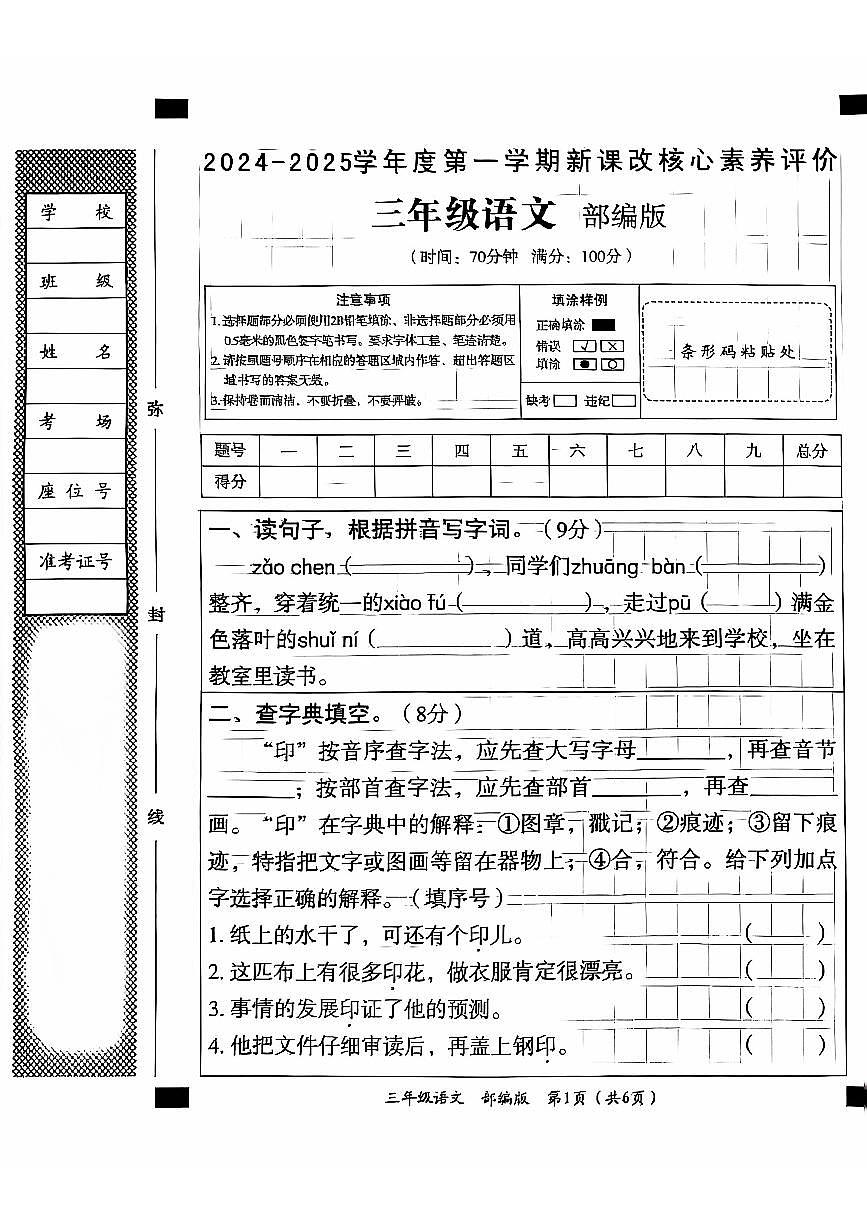 2024-2025学年度第一学期新课改核心素养评价
三年级语文 部编版
（时间：70分钟 满分：100分）
学 校
班 级
姓 名
考 场
座 位 号
准考证号
弥
封
线
注意事项
1.选择题部分必须使用2B铅笔填涂、非选择题部分必须用
0.5毫米的黑色签字笔书写。要求字体工整、笔迹清楚。
2.请按照题号顺序在相应的答题区域内作答、超出答题区
域书写的答案无效。
3.保持卷面清洁、不要折叠、不要弄破。
填涂样例
正确填涂
错误
填涂
缺考 违纪
条形码粘贴处
题号 一 二 三 四 五 六 七 八 九 总分
得分
一、读句子，根据拼音写字词。（9分）
zǎo chen（ ），同学们zhuāng bàn（ ）
整齐，穿着统一的xiào fú（ ），走过pū（ ）满金
色落叶的shuǐ ní（ ）道，高高兴兴地来到学校，坐在
教室里读书。
二、查字典填空。（8分）
“印”按音序查字法，应先查大写字母 ，再查音节
；按部首查字法，应先查部首 ，再查
画。“印”在字典中的解释：①图章，戳记；②痕迹；③留下痕
迹，特指把文字或图画等留在器物上；④合，符合。给下列加点
字选择正确的解释。（填序号）
1.纸上的水干了，可还有个印儿。 （ ）
2.这匹布上有很多印花，做衣服肯定很漂亮。 （ ）
3.事情的发展印证了他的预测。 （ ）
4.他把文件仔细审读后，再盖上钢印。 （ ）
三年级语文 部编版 第1页（共6页）